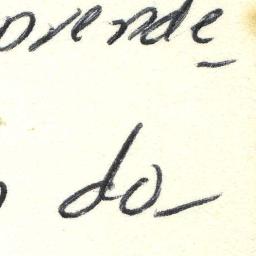 orende
do